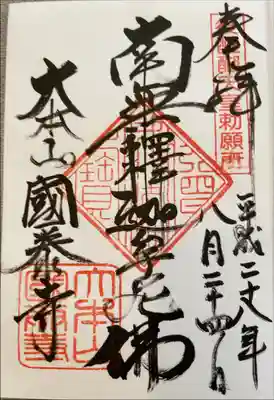 奉拝
勅願所
平成二十八年
八月二十四日
南無釋迦牟尼佛
大本山國泰寺
大本山國泰寺